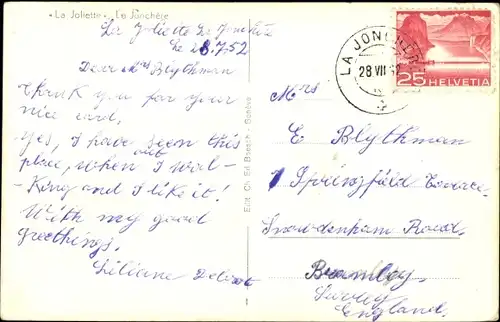 "La Joliette" - La Jonchère
La Joliette La Jonchère
Le 28.7.52
Dear Mrs Blythman
Thank you for your
nice card,
yes, I have seen this
place, when I was out wal-
-King and I like it!
With my good
greethings.
Liliane
Edit. Ch. Ed. Genève
LA JONCHERE
28.VII.52
25 HELVETIA
Mrs
E Blythman
1 Springfield Terrace
Snowdenham Road
Bramley
Surrey
England.